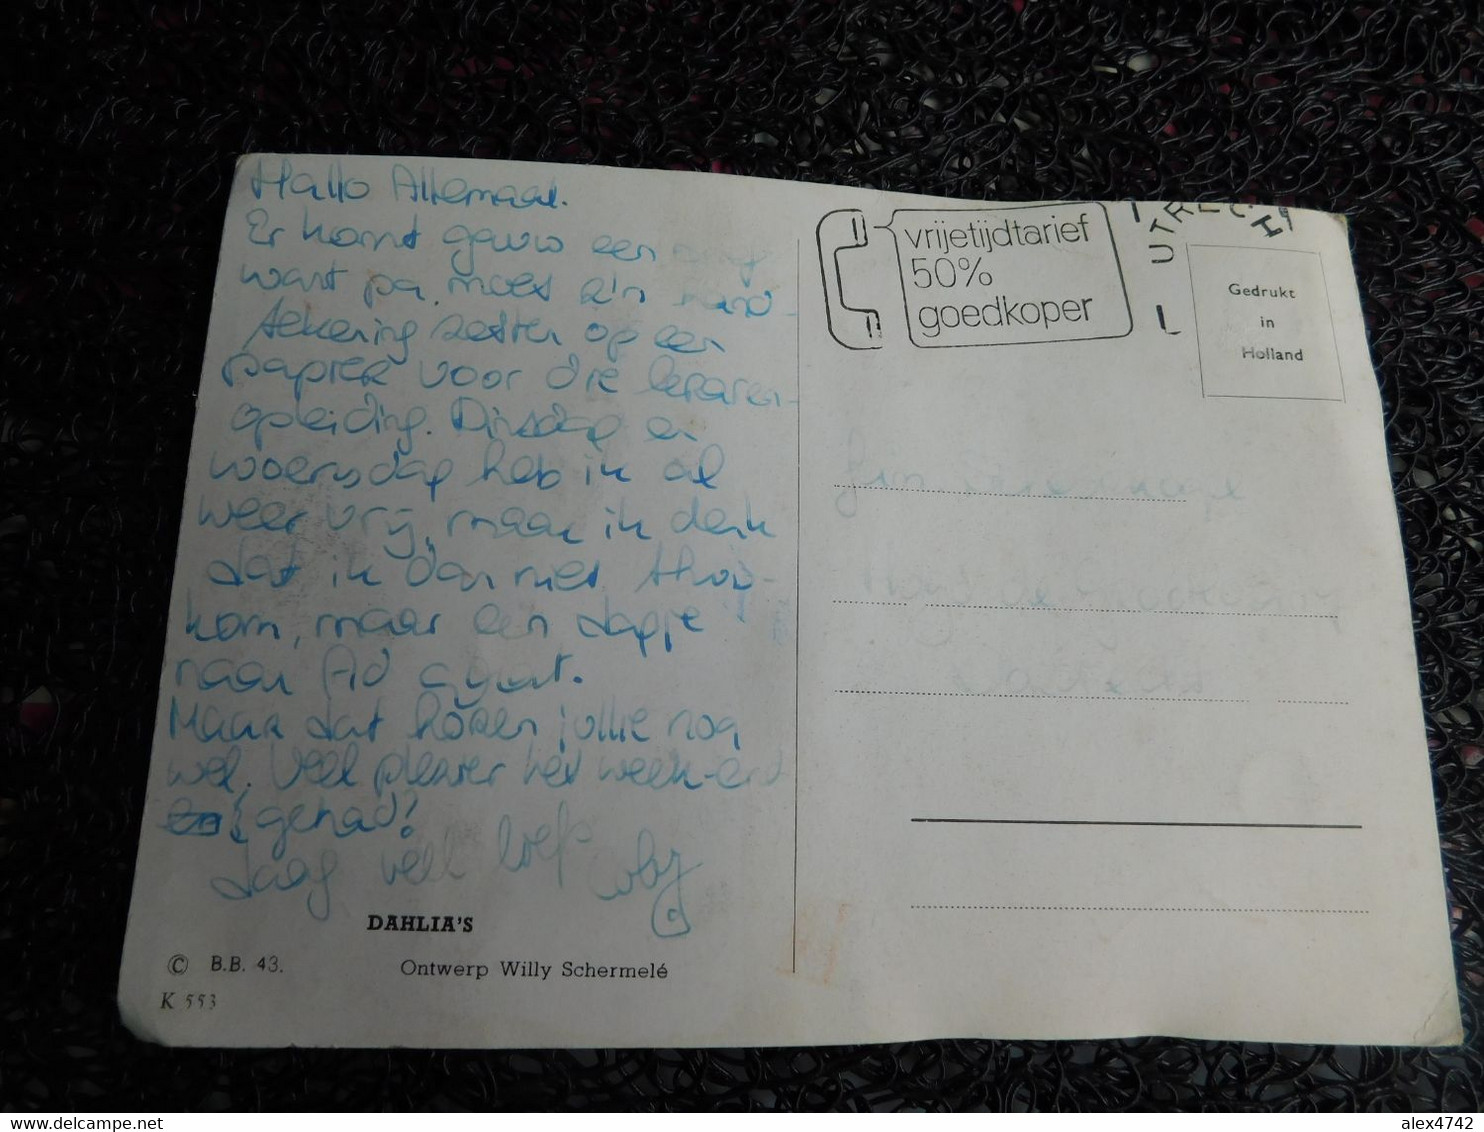 Hallo Allemaal.
Er komt gauw een
want pa moet z'n hand-
tekening zetten op een
papier voor die leraren-
opleiding. Dinsdag en
woensdag heb ik al
weer vrij, maar ik denk
dat ik dan niet thuis-
kom, maar een dagje
naar Ad ga.
Maar dat horen jullie nog
wel. Veel plezier het week-end
gehad?
daag veel liefs
DAHLIA'S
© B.B. 43.
Ontwerp Willy Schermelé
K 553
vrijetijdtarief
50%
goedkoper
UTRECHT
Gedrukt
in
Holland
alex4742